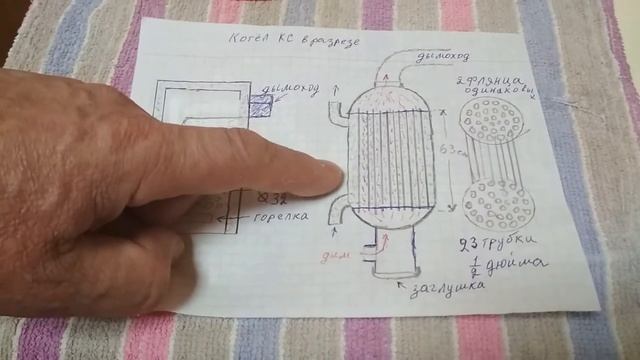 Котёл КС в разрезе
дымоход
ø 32
горелка
дымоход
63 см
дым
заглушка
2 фланца
одинаковых
23 трубки
1/2 дюйма